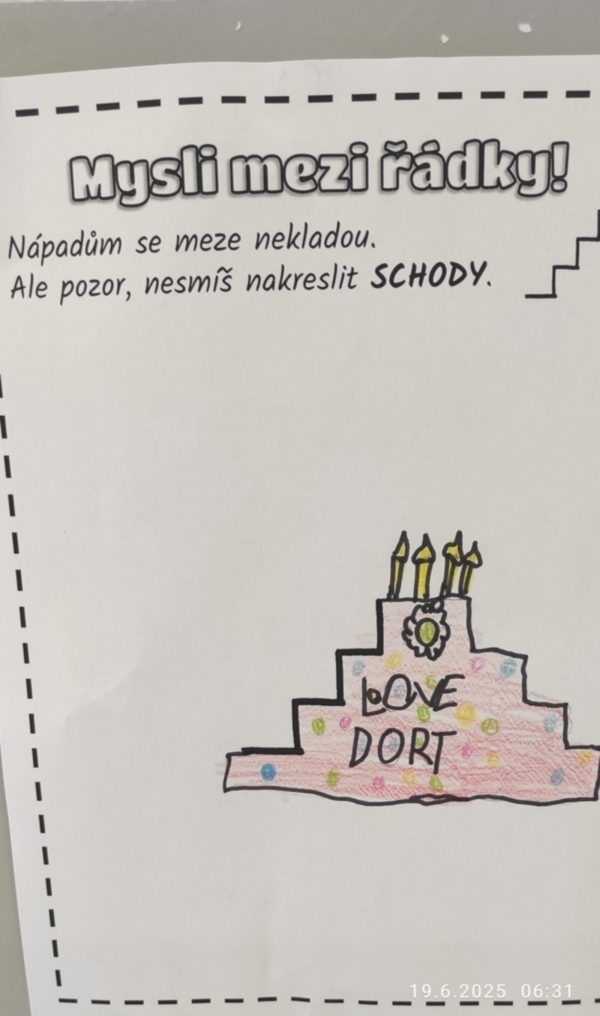 Mysli mezi řádky!
Nápadům se meze nekladou.
Ale pozor, nesmíš nakreslit SCHODY.
LOVE
DORT
19.6.2025 06:31